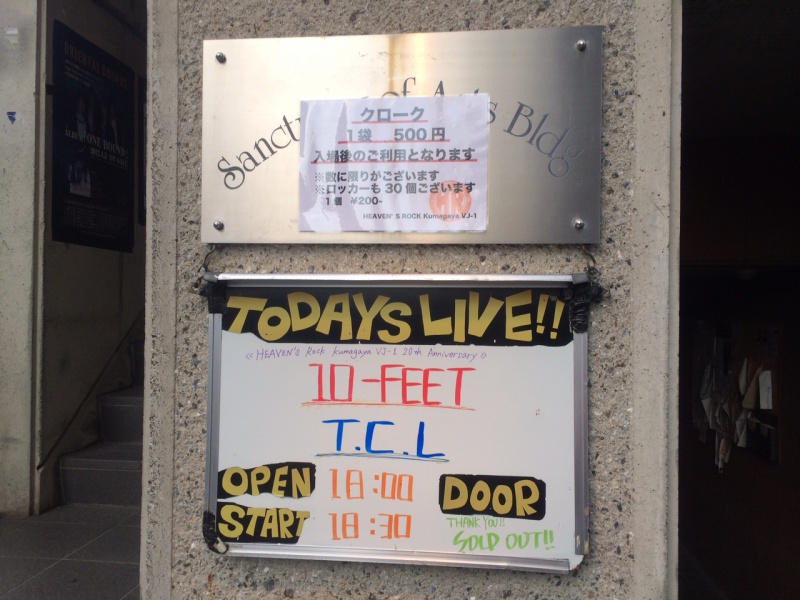 Sanctu of A s Bldg
クローク
1袋 500円
入場後のご利用となります
※数に限りがございます
※ロッカーも30個ございます
1個 ¥200~
HEAVEN'S ROCK Kumagaya VJ-1
TODAYS LIVE!!
<< HEAVEN's Rock Kumagaya VJ-1 20th Anniversary >>
10-FEET
T.C.L
OPEN 18:00
START 18:30
DOOR
THANK YOU!!
SOLD OUT!!
ONE BOUND